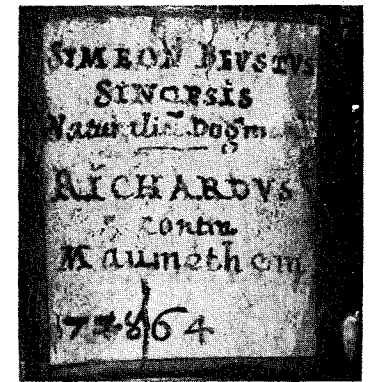 SIMEON BEVSTVS
SINOPSIS
Naturaliū Dogm
RICHARDVS
contra
Maumethem
864